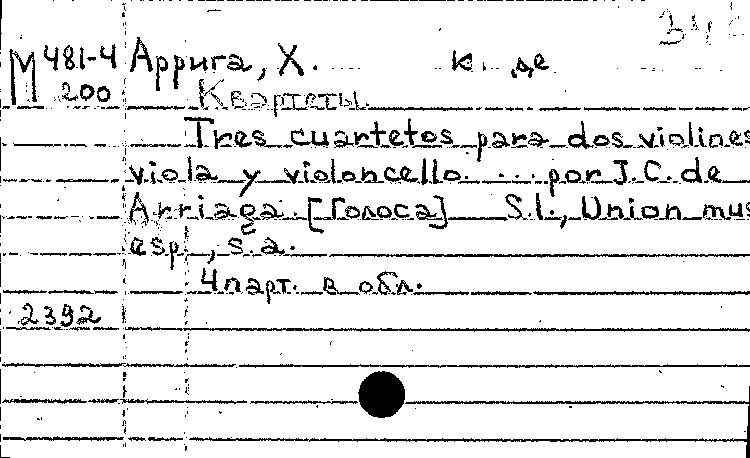 М 481-4 Аррига, Х. К. де
200 Квартеты.
Tres cuartetos para dos violines
viola y violoncello. ... por J.C. de
Arriaga. [Голоса] S.l., Union mus
esp., s.a.
4 парт. в обл.
2392